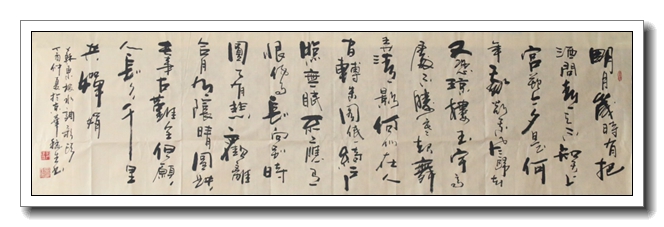 明月幾時有把
酒問青天不知天上
宮闕今夕是何
年我欲乘風歸去
又恐瓊樓玉宇高
處不勝寒起舞
弄清影何似在人
間轉朱閣低綺戶
照無眠不應有
恨何事長向別時
圓人有悲歡離
合月有陰晴圓缺
此事古難全但願
人長久千里
共嬋娟
蘇東坡水調歌頭
丁酉仲夏於京華